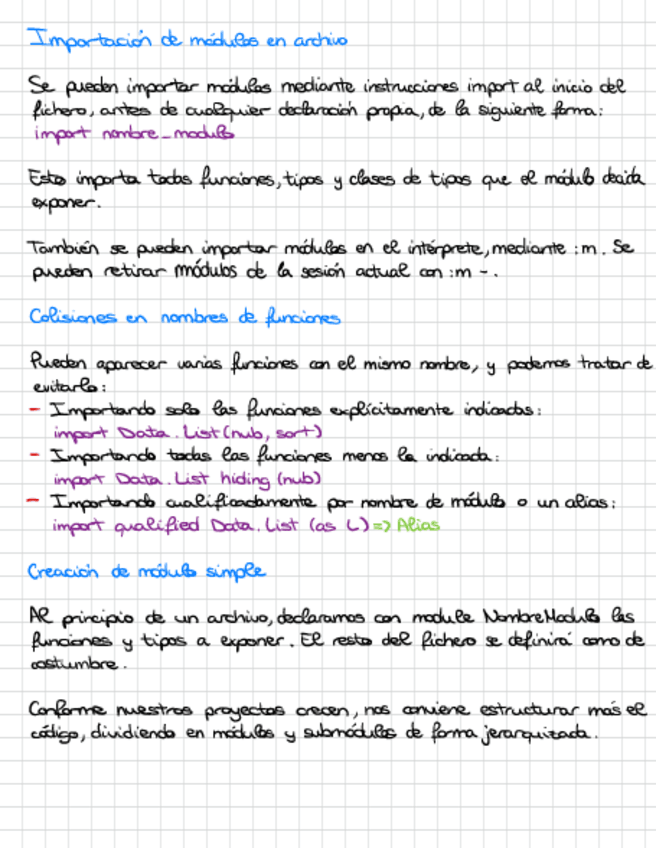 Importación de módulos en archivo
Se pueden importar módulos mediante instrucciones import al inicio del
fichero, antes de cualquier declaración propia, de la siguiente forma:
import nombre_modulo
Esto importa todas funciones, tipos y clases de tipos que el módulo decida
exponer.
También se pueden importar módulos en el intérprete, mediante :m. Se
pueden retirar módulos de la sesión actual con :m -.
Colisiones en nombres de funciones
Pueden aparecer varias funciones con el mismo nombre, y podemos tratar de
evitarlo:
- Importando solo las funciones explícitamente indicadas:
import Data.List(nub, sort)
- Importando todas las funciones menos la indicada:
import Data.List hiding (nub)
- Importando cualificadamente por nombre de módulo o un alias:
import qualified Data.List (as L) => Alias
Creación de módulo simple
Al principio de un archivo, declaramos con module NombreModulo las
funciones y tipos a exponer. El resto del fichero se definirá como de
costumbre.
Conforme nuestros proyectos crecen, nos conviene estructurar más el
código, dividiendo en módulos y submódulos de forma jerarquizada.